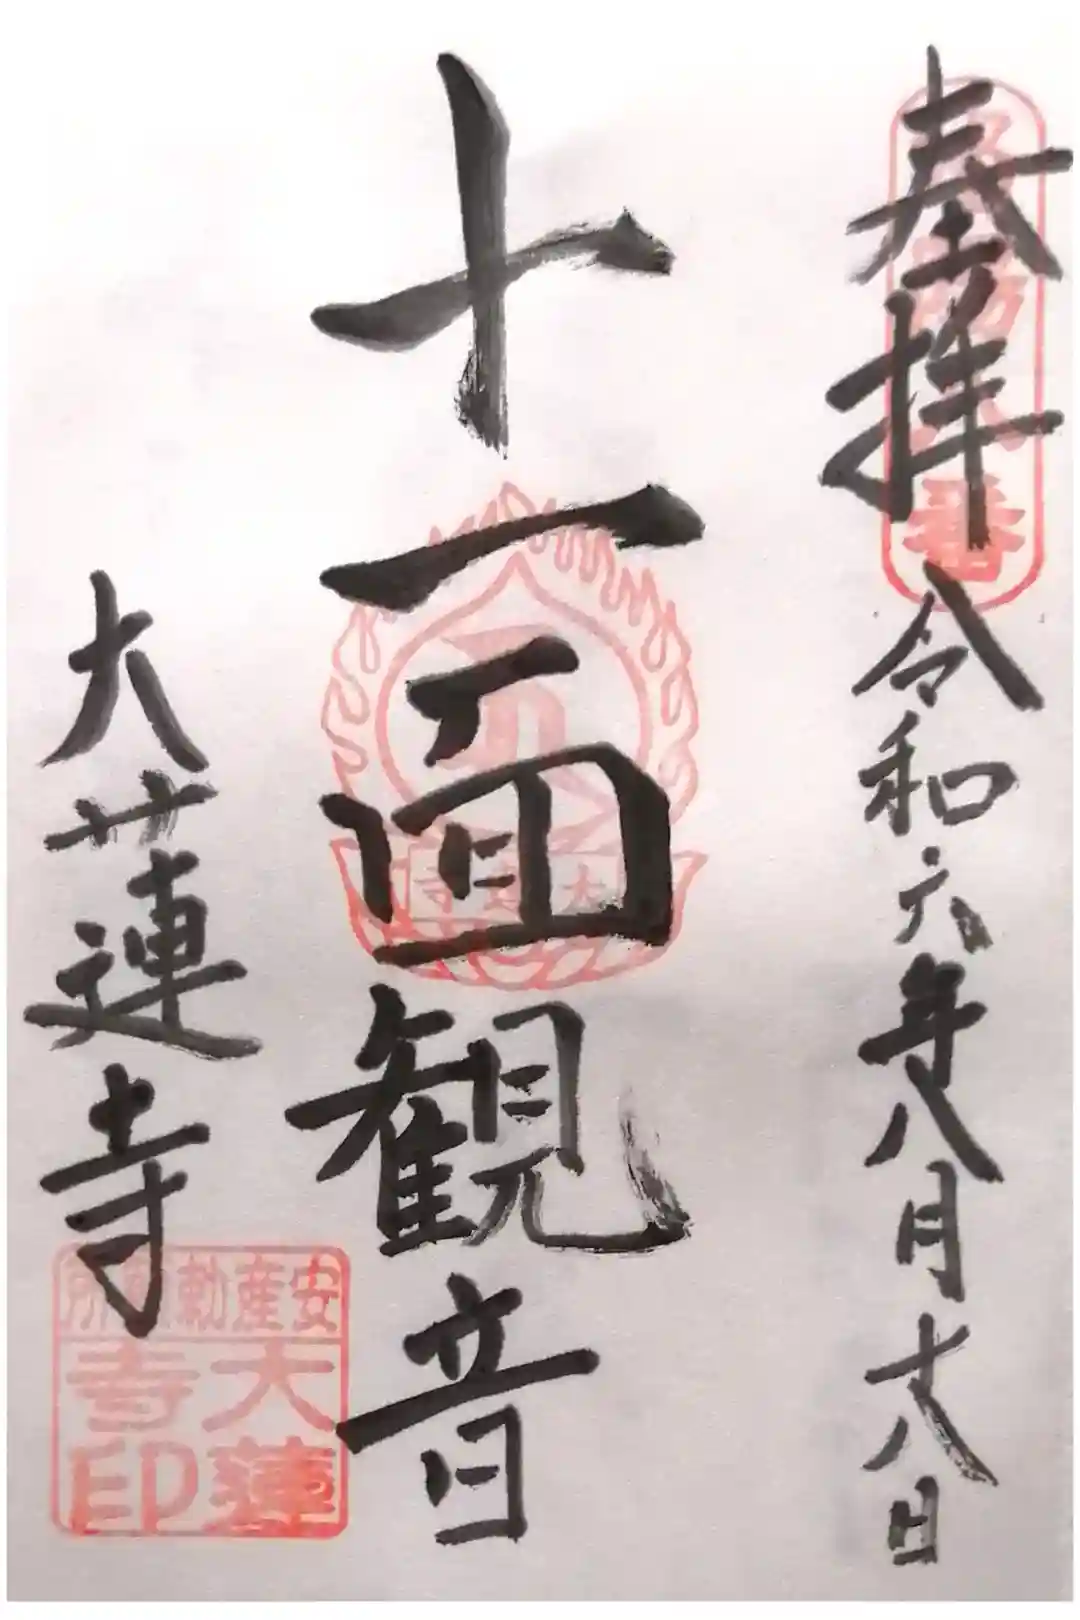 奉拝
令和六年八月十八日
十一面観音
大蓮寺
安産勅願所
大蓮寺印